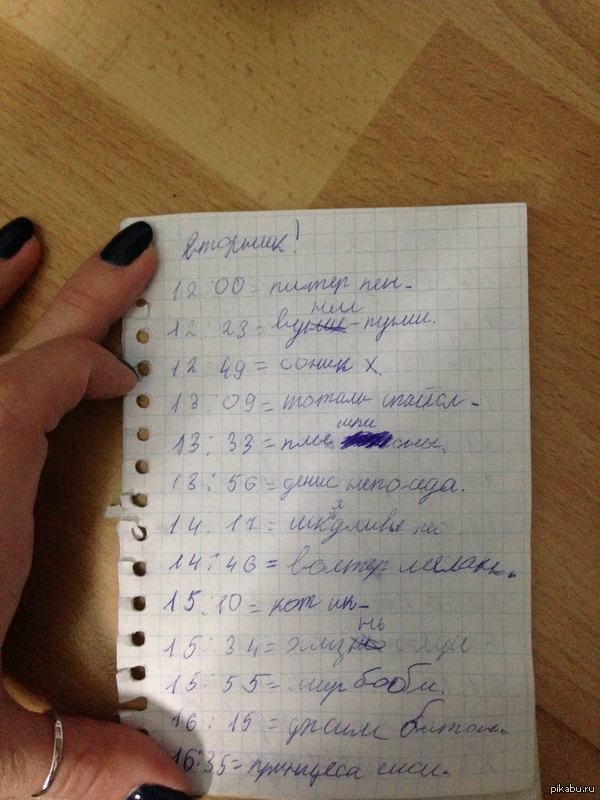 Вторник!
12:00 = питер пен.
12:23 = вуншпуншм.
12 49 = соник х.
13:09 = тотали спайсал
13:33 = плимпионы.
13:56 = денис непоседа.
14:17 = шкодливы пес
14:46 = волтер мелакн.
15:10 = кот ик
15:34 = жизнь с луи
15:55 = мир бобби.
16:15 = джим батон.
16:35 = принцеса сиси.
pikabu.ru